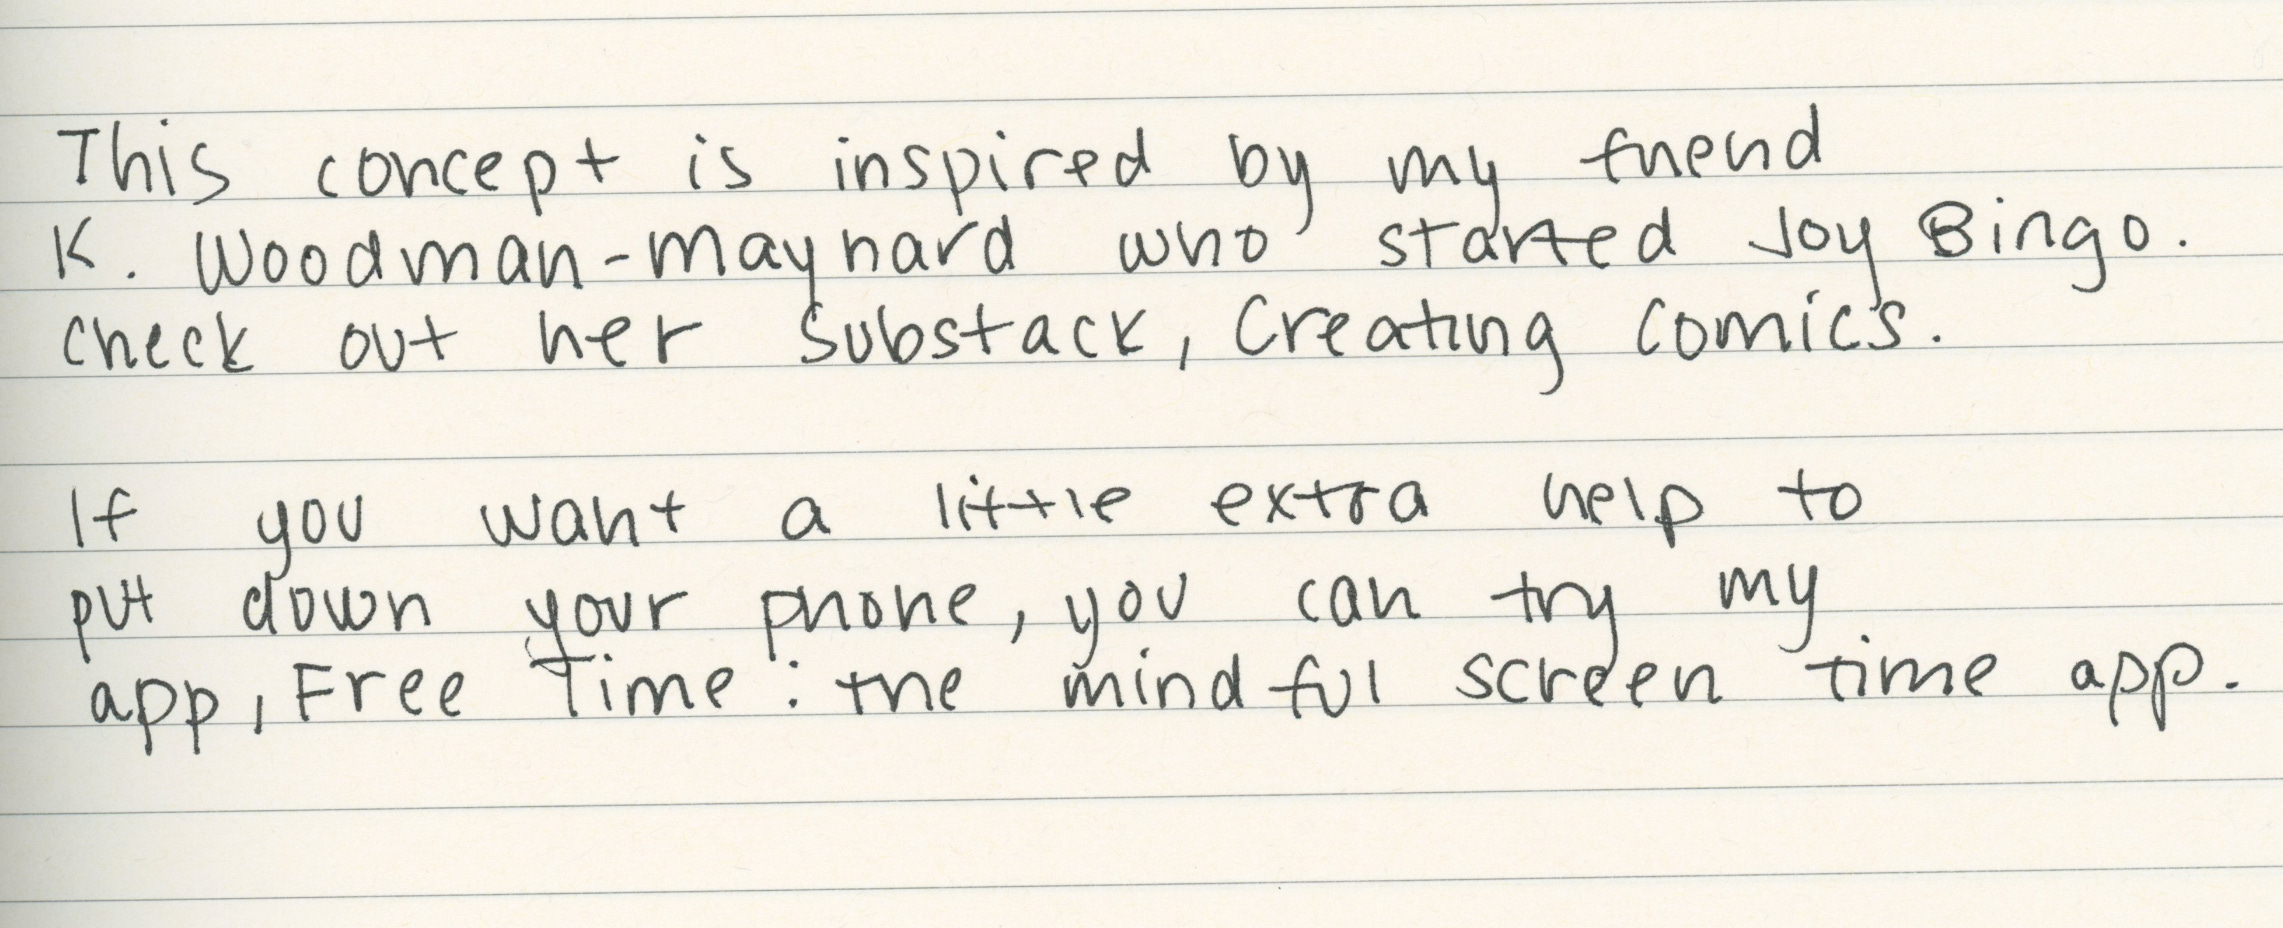 This concept is inspired by my friend
K. Woodman-Maynard who started Joy Bingo.
Check out her Substack, Creating Comics.
If you want a little extra help to
put down your phone, you can try my
app, Free Time: the mindful screen time app.